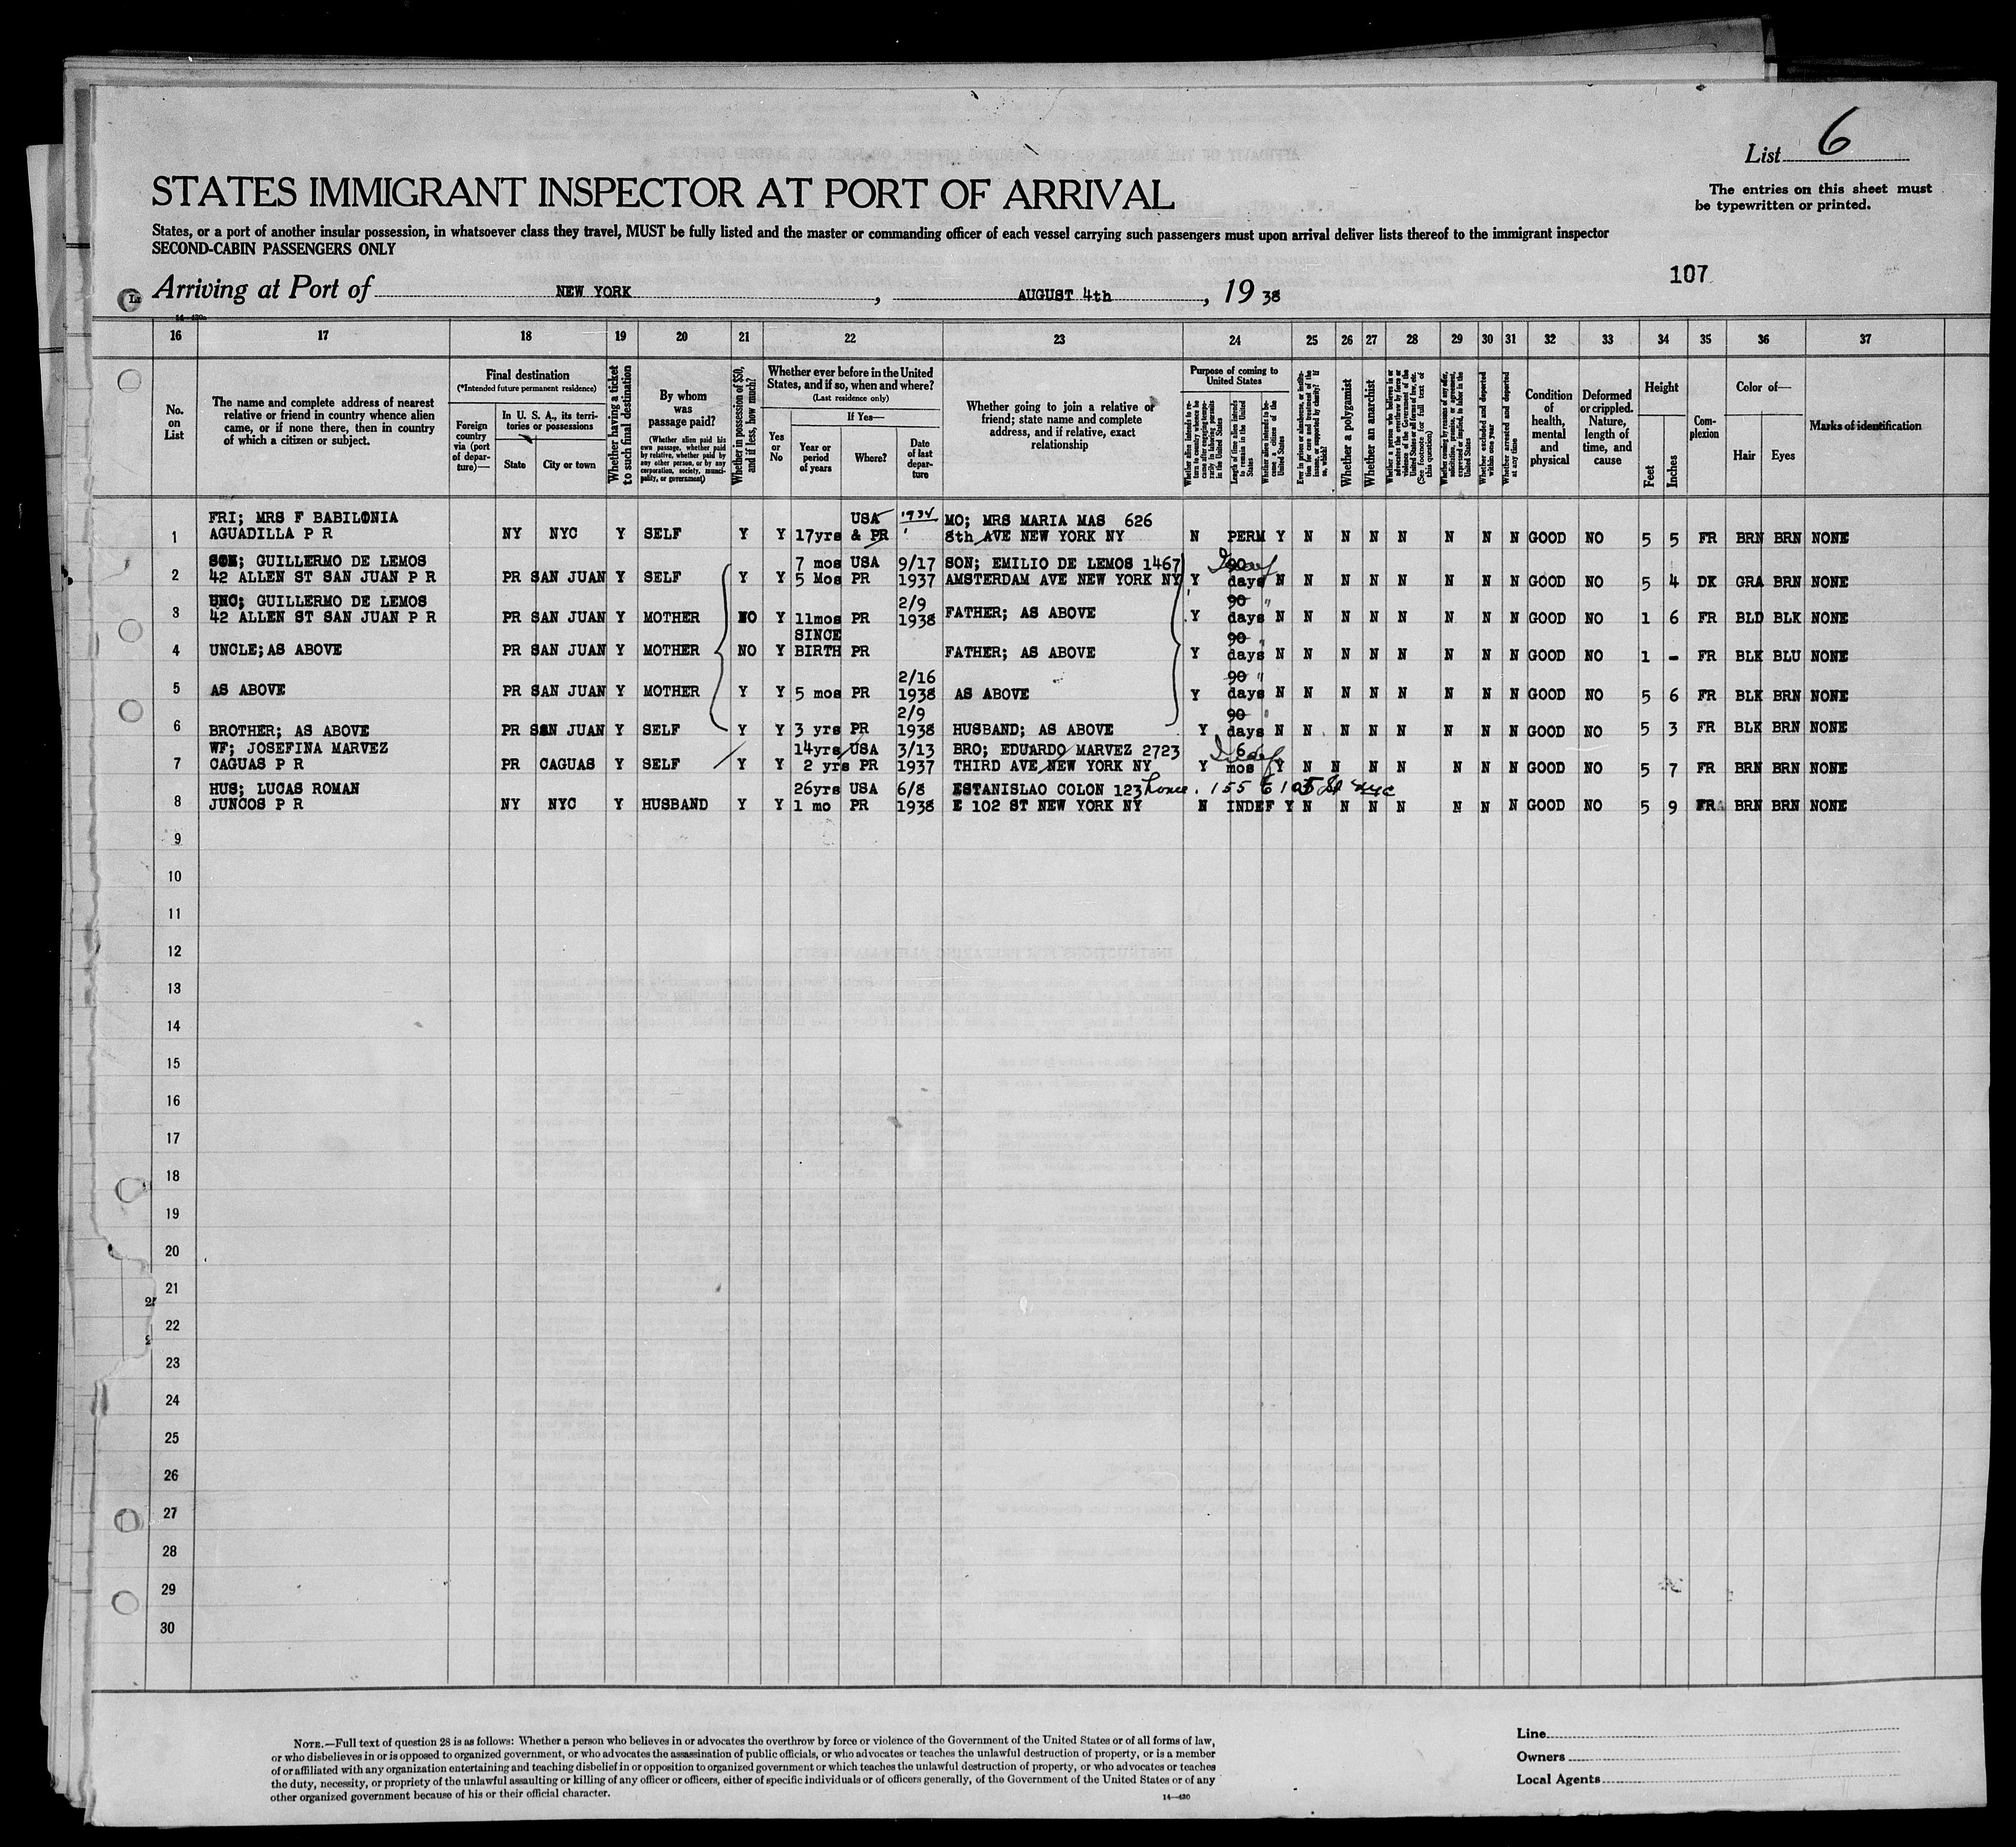 List 6
The entries on this sheet must
be typewritten or printed.
STATES IMMIGRANT INSPECTOR AT PORT OF ARRIVAL
States, or a port of another insular possession, in whatsoever class they travel, MUST be fully listed and the master or commanding officer of each vessel carrying such passengers must upon arrival deliver lists thereof to the immigrant inspector
SECOND-CABIN PASSENGERS ONLY
107
Arriving at Port of NEW YORK, AUGUST 4th, 1938
16 17 18 19 20 21 22 23 24 25 26 27 28 29 30 31 32 33 34 35 36 37
No.
on
List
The name and complete address of nearest
relative or friend in country whence alien
came, or if none there, then in country
of which a citizen or subject.
Final destination
(*Intended future permanent residence)
Foreign
country
via (port
of depar-
ture)—
In U. S. A., its terri-
tories or possessions
State City or town
Whether having a ticket
to such final destination
By whom
was
passage paid?
(Whether alien paid his
own passage, whether paid
by relative, whether paid by
any other person, or by any
corporation, society, munici-
pality, or government)
Whether in possession of $50,
and if less, how much?
Whether ever before in the United
States, and if so, when and where?
(Last residence only)
Yes
or
No
If Yes—
Year or
period
of years
Where?
Date
of last
depar-
ture
Whether going to join a relative or
friend; state name and complete
address, and if relative, exact
relationship
Purpose of coming to
United States
Whether alien intends to re-
turn to country whence he
came after engaging tempo-
rarily in laboring pursuits
in the United States
Length of time alien intends
to remain in the United
States
Whether alien intends to be-
come a citizen of the
United States
Ever in prison or almshouse, or institu-
tion for care and treatment of the
insane, or supported by charity? If
so, which?
Whether a polygamist
Whether an anarchist
Whether a person who believes in or
advocates the overthrow by force or
violence of the Government of the
United States or all forms of law, etc.
(See footnote for full text of
this question)
Whether coming by reason of any offer,
solicitation, promise, or agreement,
express or implied, to labor in the
United States
Whether excluded and deported
within one year
Whether arrested and deported
at any time
Condition
of
health,
mental
and
physical
Deformed
or crippled.
Nature,
length of
time, and
cause
Height
Feet Inches
Com-
plexion
Color of—
Hair Eyes
Marks of identification
FRI; MRS F BABILONIA USA 1934 MO; MRS MARIA MAS 626
1 AGUADILLA P R NY NYC Y SELF Y Y 17yrs & PR 8th AVE NEW YORK NY N PERM Y N N N N N N N GOOD NO 5 5 FR BRN BRN NONE
SON; GUILLERMO DE LEMOS 7 mos USA 9/17 SON; EMILIO DE LEMOS 1467 90 Indef
2 42 ALLEN ST SAN JUAN P R PR SAN JUAN Y SELF Y Y 5 Mos PR 1937 AMSTERDAM AVE NEW YORK NY Y days N N N N N N N N GOOD NO 5 4 DK GRA BRN NONE
UNC; GUILLERMO DE LEMOS 2/9 90 "
3 42 ALLEN ST SAN JUAN P R PR SAN JUAN Y MOTHER NO Y 11mos PR 1938 FATHER; AS ABOVE Y days N N N N N N N N GOOD NO 1 6 FR BLD BLK NONE
SINCE 90 "
4 UNCLE; AS ABOVE PR SAN JUAN Y MOTHER NO Y BIRTH PR FATHER; AS ABOVE Y days N N N N N N N N GOOD NO 1 - FR BLK BLU NONE
2/16 90 "
5 AS ABOVE PR SAN JUAN Y MOTHER Y Y 5 mos PR 1938 AS ABOVE Y days N N N N N N N N GOOD NO 5 6 FR BLK BRN NONE
2/9 90 "
6 BROTHER; AS ABOVE PR SAN JUAN Y SELF Y Y 3 yrs PR 1938 HUSBAND; AS ABOVE Y days N N N N N N N N GOOD NO 5 3 FR BLK BRN NONE
WF; JOSEFINA MARVEZ 14yrs USA 3/13 BRO; EDUARDO MARVEZ 2723 6 Indef
7 CAGUAS P R PR CAGUAS Y SELF Y Y 2 yrs PR 1937 THIRD AVE NEW YORK NY Y mos Y N N N N N N N GOOD NO 5 7 FR BRN BRN NONE
HUS; LUCAS ROMAN 26yrs USA 6/8 ESTANISLAO COLON 123 home. 155 E 105 St nyc
8 JUNCOS P R NY NYC Y HUSBAND Y Y 1 mo PR 1938 E 102 ST NEW YORK NY N INDEF Y N N N N N N N GOOD NO 5 9 FR BRN BRN NONE
9
10
11
12
13
14
15
16
17
18
19
20
21
22
23
24
25
26
27
28
29
30
NOTE.—Full text of question 28 is as follows: Whether a person who believes in or advocates the overthrow by force or violence of the Government of the United States or of all forms of law,
or who disbelieves in or is opposed to organized government, or who advocates the assassination of public officials, or who advocates or teaches the unlawful destruction of property, or is a member
of or affiliated with any organization entertaining and teaching disbelief in or opposition to organized government or which teaches the unlawful destruction of property, or who advocates or teaches
the duty, necessity, or propriety of the unlawful assaulting or killing of any officer or officers, either of specific individuals or of officers generally, of the Government of the United States or of any
other organized government because of his or their official character.
14—430
Line
Owners
Local Agents